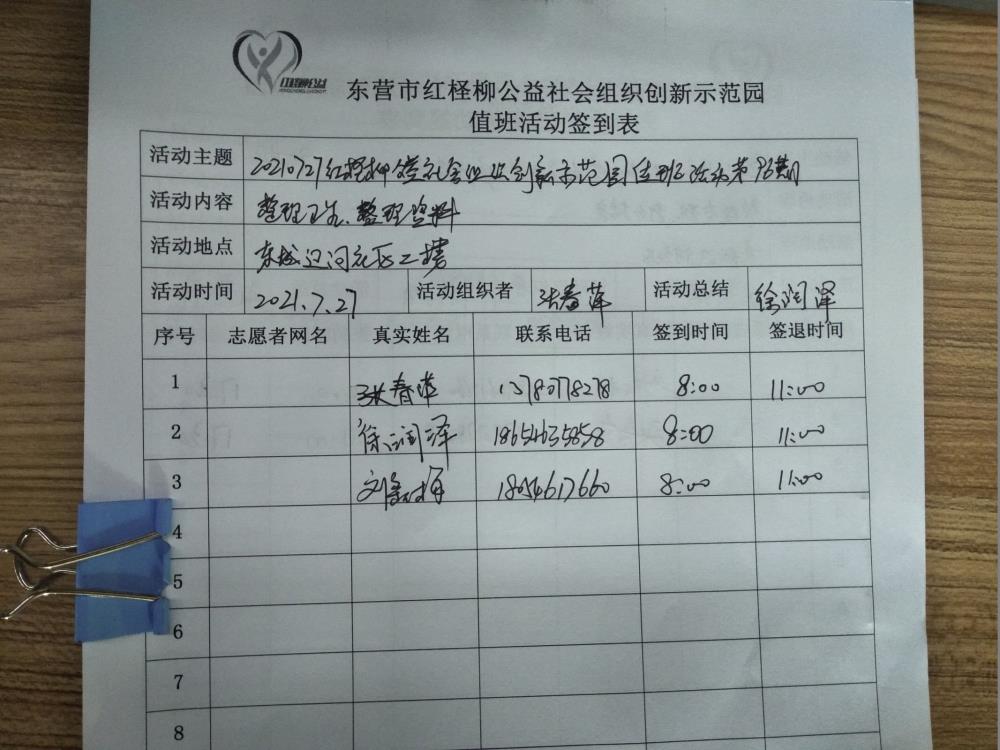 红柽柳公益
东营市红柽柳公益社会组织创新示范园
值班活动签到表
活动主题 20210727红柽柳公益社会组织创新示范园值班活动第96期
活动内容 整理卫生、整理资料
活动地点 东城辽河社区二楼
活动时间 2021.7.27 活动组织者 张春萍 活动总结 徐润泽
序号 志愿者网名 真实姓名 联系电话 签到时间 签退时间
1 张春萍 8:00 11:00
2 徐润泽 18654635858 8:00 11:00
3 18054617660 8:00 11:00
4
5
6
7
8